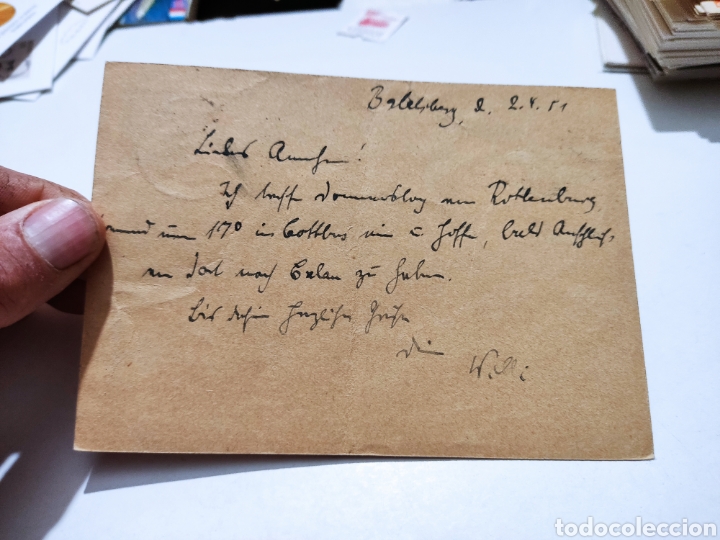 Babelsberg, d. 2.4.51
Liebes Annchen!
Ich treffe Donnerstag von Rothenburg
rund um 17⁰ in Cottbus ein u hoffe, bald Anschluß
von dort nach Calau zu haben.
Bis dahin herzliche Grüße
Dein
Willi
todocoleccion